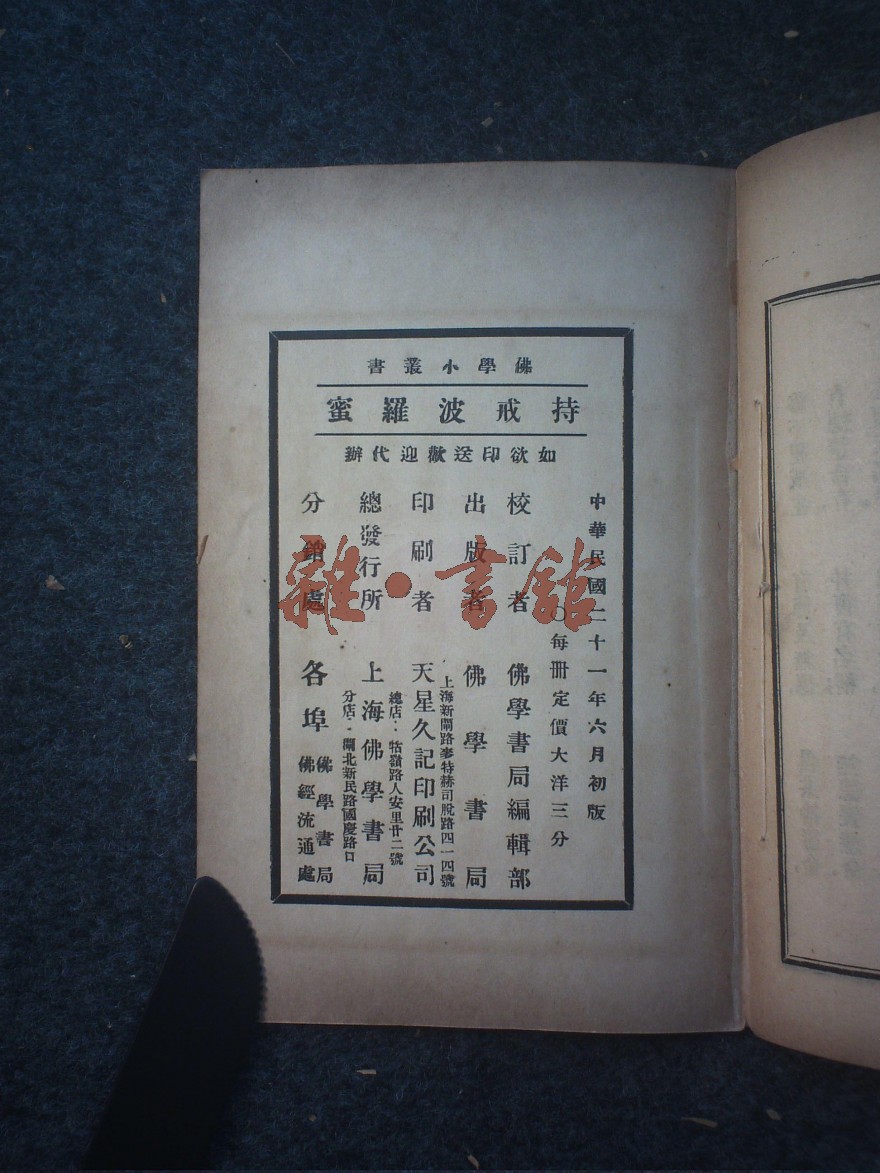 佛學小叢書
持戒波羅蜜
如欲印送歡迎代辦
中華民國二十一年六月初版
○每冊定價大洋三分
校訂者 佛學書局編輯部
出版者 佛學書局
上海新閘路麥特赫司脫路四一四號
印刷者 天星久記印刷公司
總店：牯嶺路人安里廿二號
總發行所 上海佛學書局
分店：閘北新民路國慶路口
分銷處 各埠 佛學書局
佛經流通處
雜·書館